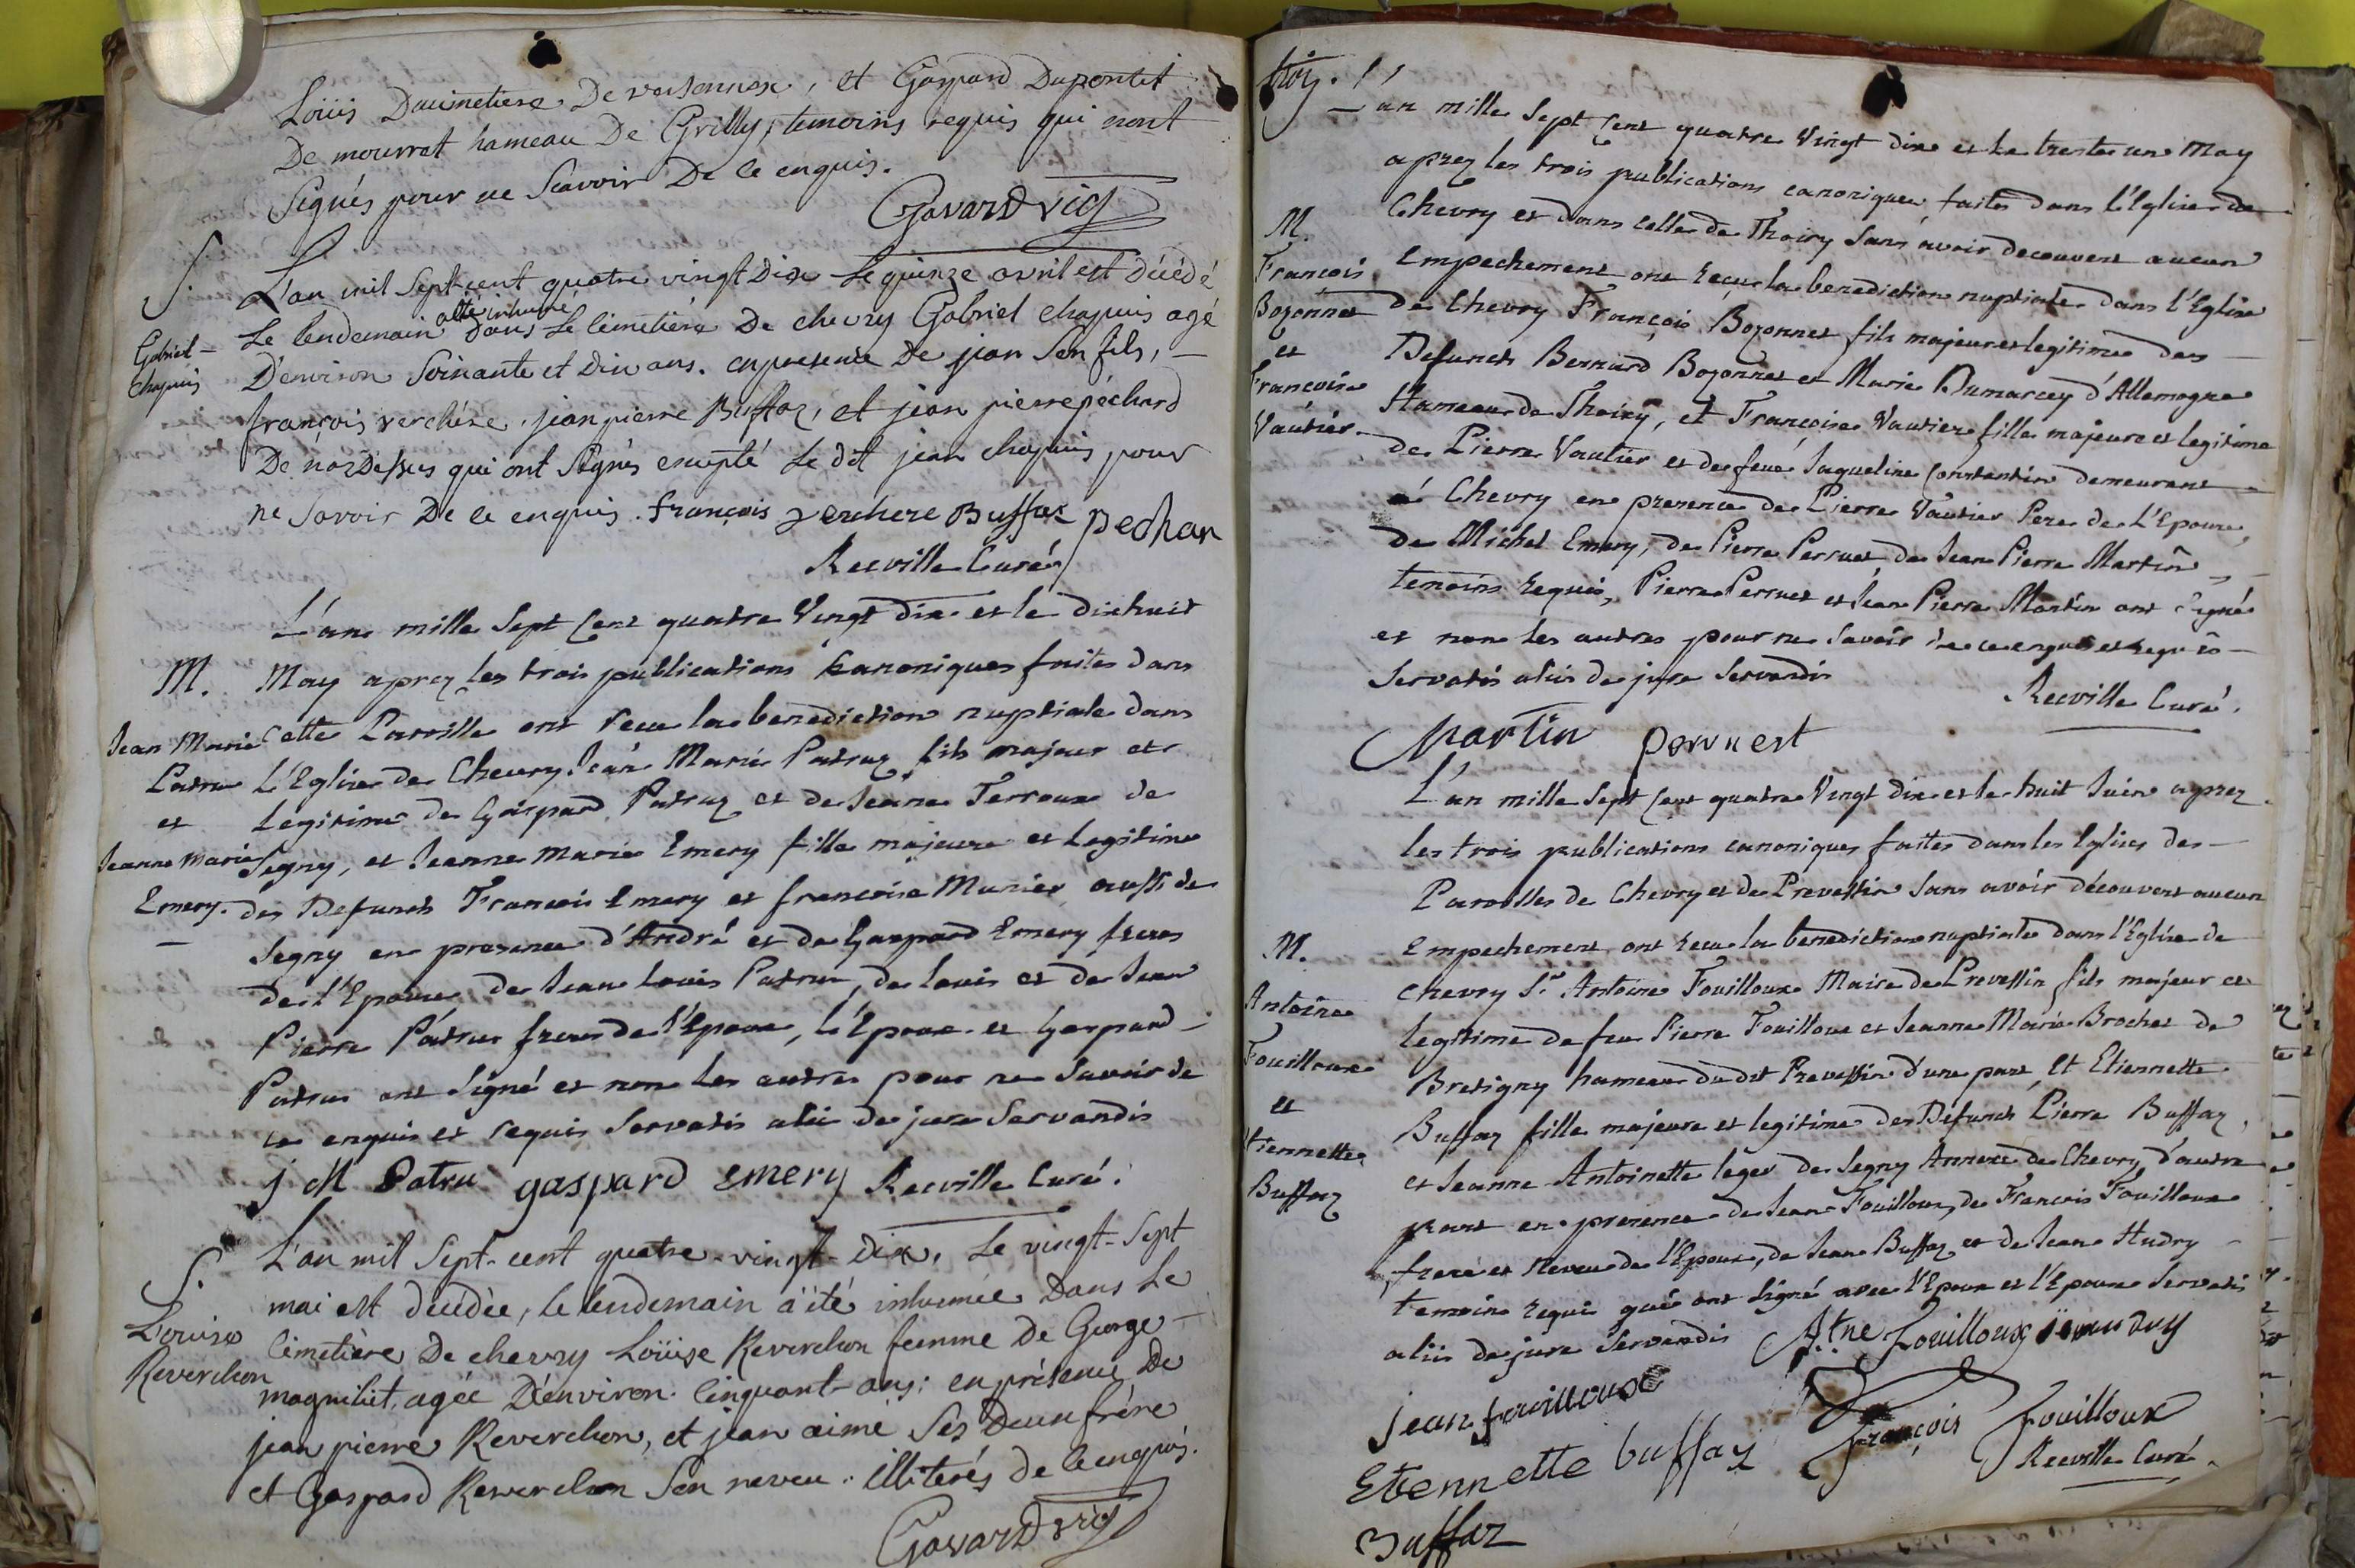 Loüis Ducimetiere De versonnex, et Gaspard Dupontet
De mourret hameau De Grilly, temoins requis qui nont
Signés pour ne Scavoir De ce enquis.
Gavard vic
S.
Gabriel
chapuis
L'an mil Sept-cent quatre vingt Dix Le quinze avril est Décédé
a été inhumé
Le lendemain dans Le Cimetière De chevry Gabriel chapuis agé
D'environ Soixante et Dix ans. en presence De jean Son fils,
françois verchère, jean pierre Buffaz, et jean pierre péchard
De naz Dessus qui ont Signés excepté Le dit jean chapuis pour
ne Savoir De ce enquis. françois verchere Buffaz pechar
Recville Curé
M.
Jean Marie
Patru
et
Jeanne Marie
Emery.
L'an mille Sept Cent quatre Vingt dix et le dixhuit
May aprez les trois publications Canoniques faites dans
Cette Paroisse ont recu la benediction nuptiale dans
L'Eglise de Chevry Jean Marie Patruz fils majeur et
Legitime de Gaspard Patruz et de Jeane Terroux de
Segny, et Jeanne Marie Emery fille majeure et Legitime
des Defuncts François Emery et francoise Munier aussi de
Segny en presence d'André et de Gaspard Emery freres
de l'Epouse, de Jean Louis Patru, de Louis et de Jean
Pierre Patru freres de l'Epoux, l'Epoux et Gaspard
Patru ont Signé et non les autres pour ne Savoir de
ce enquis et requis Servatis aliis de jure Servandis
j M Patru gaspard Emery Recville Curé.
S.
Louise
Reverchon
L'an mil Sept-cent quatre-vingt-Dix, Le vingt-Sept
mai est décédée, le lendemain a été inhumée Dans Le
Cimetière De chevry Loüise Reverchon femme De George
magnilliet, agée D'environ Cinquant-ans; en présence De
jean pierre Reverchon, et jean aimé Ses Deux frère
et Gaspard Reverchon Son neveu. illiterés de ce enquis.
Gavard vic
L'an mille Sept Cent quatre Vingt dix et le trente un May
aprez les trois publications canoniques faites dans l'Eglise de
Chevry et dans celle de Thoiry Sans avoir decouvert aucun
M.
François
Bozonnet
et
Françoise
Vautier
Empechement ont reçu la benediction nuptiale dans l'Eglise
de Chevry François Bozonnet fils majeur et legitime des
Defuncts Bernard Bozonnet et Marie Dumarcey d'Allemogne
Hameau de Thoiry, et Françoise Vautier fille majeure et legitime
de Pierre Vautier et de feue Jaqueline Constantin demeurant
à Chevry en presence de Pierre Vautier Pere de L'Epouse,
de Michel Emery, de Pierre Perruet, de Jean Pierre Martin
temoins requis, Pierre Perruet et Jean Pierre Martin ont Signé
et non les autres pour ne Savoir de ce enquis et requis
Servatis aliis de jure Servandis
Recville Curé.
Martin perruest
L'an mille Sept Cent quatre Vingt dix et le huit Juin aprez
les trois publications canoniques faites dans les Eglises des
Paroisses de Chevry et de Prevessin Sans avoir découvert aucun
M.
Antoine
Fouilloux
et
Etiennette
Buffaz
Empechement ont recu la benediction nuptiale dans l'Eglise de
Chevry Sr Antoine Fouilloux Maire de Prevessin fils majeur et
legitime de feu Pierre Fouilloux et Jeanne Marie Brochet de
Bretigny hameau du dit Prevessin d'une part, et Etiennette
Buffaz fille majeure et legitime des Defuncts Pierre Buffaz
et Jeanne Antoinette leger de Segny Annexe de Chevry d'autre
part en presence de Jean Fouilloux, de François Fouilloux
frere et Neveu de l'Epoux, de Jean Buffaz et de Jean Hudry
temoins requis qui ont Signé avec l'Epoux et l'Epouse Servatis
aliis de jure Servandis Atne Fouilloux
jean fouilloux
Etiennette buffaz François Fouilloux
Recville Curé
Buffaz